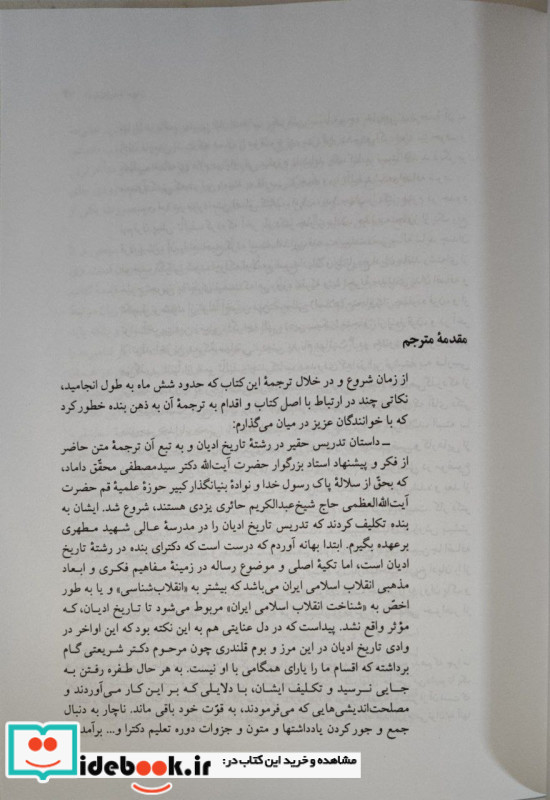 مقدمهٔ مترجم
از زمان شروع و در خلال ترجمهٔ این کتاب که حدود شش ماه به طول انجامید،
نکاتی چند در ارتباط با اصل کتاب و اقدام به ترجمهٔ آن به ذهن بنده خطور کرد
که با خوانندگان عزیز در میان می‌گذارم:
ــ داستان تدریس حقیر در رشتهٔ تاریخ ادیان و به تبع آن ترجمهٔ متن حاضر
از فکر و پیشنهاد استاد بزرگوار حضرت آیت‌الله دکتر سیدمصطفی محقّق داماد،
که بحقّ از سلالهٔ پاک رسول خدا و نوادهٔ بنیانگذار کبیر حوزهٔ علمیهٔ قم حضرت
آیت‌الله‌العظمی حاج شیخ‌عبدالکریم حائری یزدی هستند، شروع شد. ایشان به
بنده تکلیف کردند که تدریس تاریخ ادیان را در مدرسهٔ عالی شهید مطهری
برعهده بگیرم. ابتدا بهانه آوردم که درست است که دکترای بنده در رشتهٔ تاریخ
ادیان است، اما تکیهٔ اصلی و موضوع رساله در زمینهٔ مفاهیم فکری و ابعاد
مذهبی انقلاب اسلامی ایران می‌باشد که بیشتر به «انقلاب‌شناسی» و یا به طور
اخصّ به «شناخت انقلاب اسلامی ایران» مربوط می‌شود تا تاریخ ادیان، که
مؤثر واقع نشد. پیداست که در دل عنایتی هم به این نکته بود که این اواخر در
وادی تاریخ ادیان در این مرز و بوم قلندری چون مرحوم دکتر شریعتی گام
برداشته که اقسام ما را یارای همگامی با او نیست. به هر حال طفره رفتن به
جایی نرسید و تکلیف ایشان، با دلایلی که بر این کار می‌آوردند و
مصلحت‌اندیشی‌هایی که می‌فرمودند، به قوّت خود باقی ماند. ناچار به دنبال
جمع و جور کردن یادداشتها و متون و جزوات دوره تعلیم دکترا و... برآمد
idebook.ir
مشاهده و خرید این کتاب در:
idebook.ir